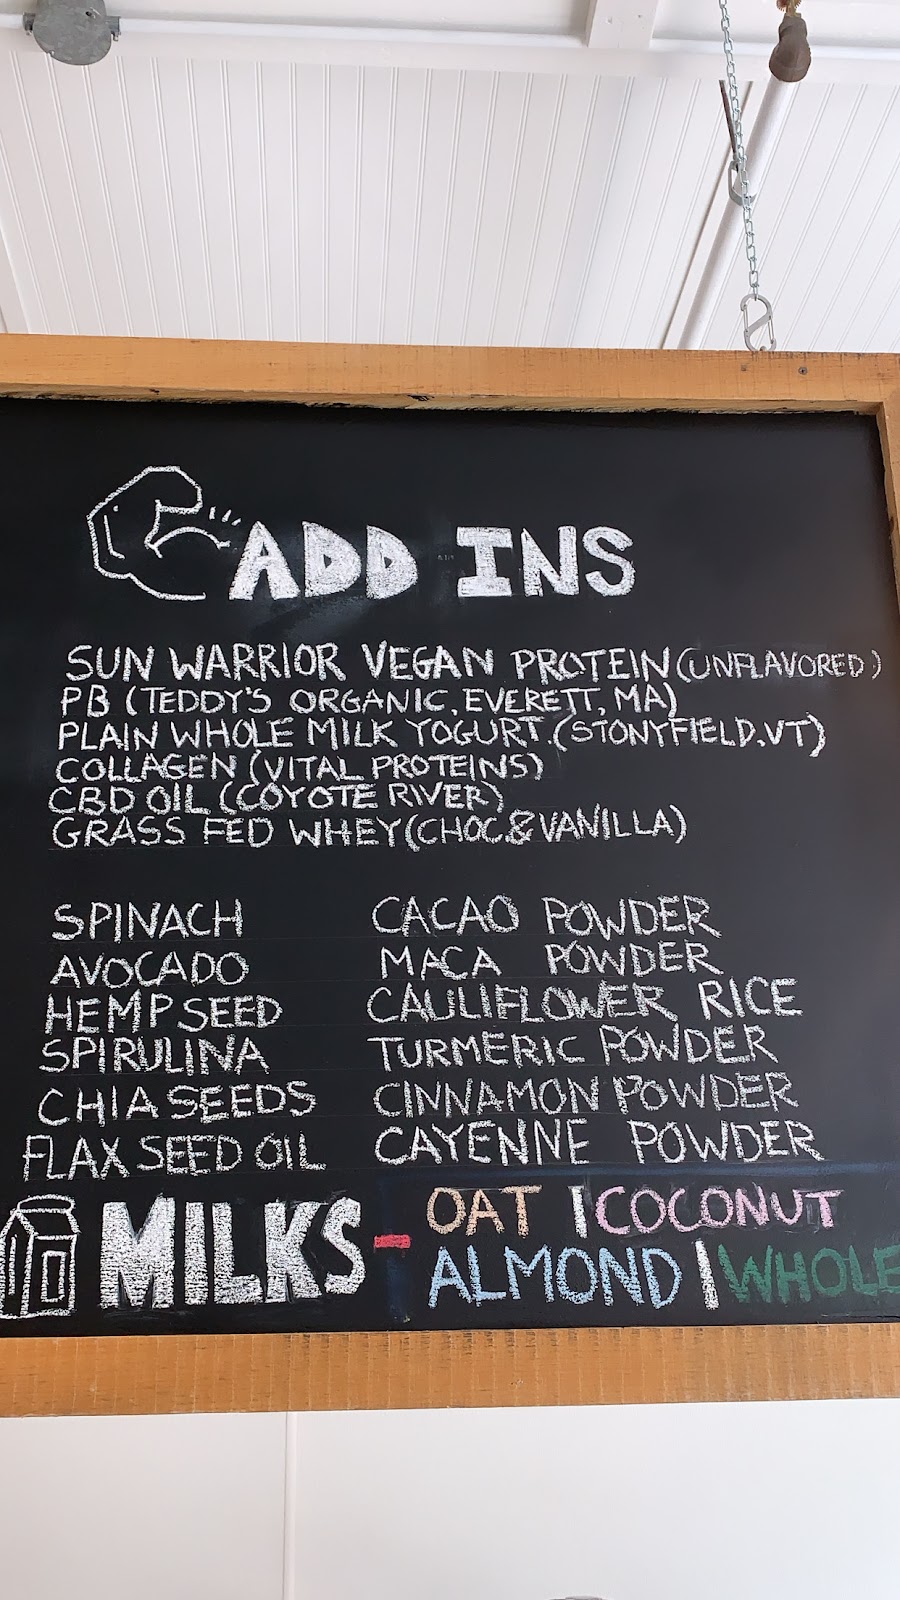 ADD INS
SUN WARRIOR VEGAN PROTEIN (UNFLAVORED)
PB (TEDDY'S ORGANIC, EVERETT, MA)
PLAIN WHOLE MILK YOGURT (STONYFIELD, VT)
COLLAGEN (VITAL PROTEINS)
CBD OIL (COYOTE RIVER)
GRASS FED WHEY (CHOC & VANILLA)
SPINACH
AVOCADO
HEMP SEED
SPIRULINA
CHIA SEEDS
FLAX SEED OIL
CACAO POWDER
MACA POWDER
CAULIFLOWER RICE
TURMERIC POWDER
CINNAMON POWDER
CAYENNE POWDER
MILKS -
OAT | COCONUT
ALMOND | WHOLE